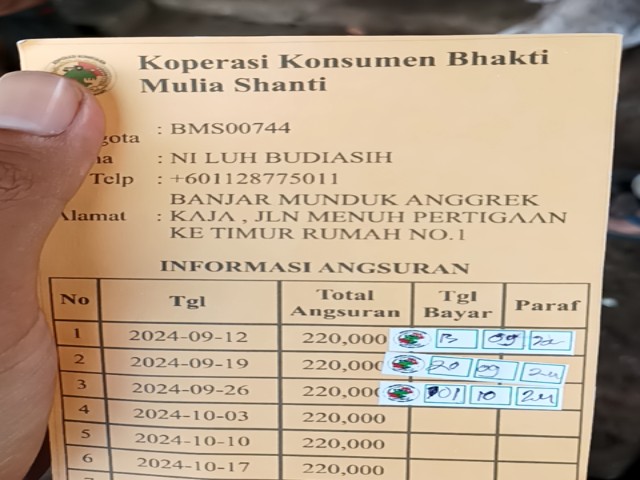 Koperasi Konsumen Bhakti
Mulia Shanti
gota : BMS00744
na : NI LUH BUDIASIH
Telp : +601128775011
Alamat : BANJAR MUNDUK ANGGREK
KAJA , JLN MENUH PERTIGAAN
KE TIMUR RUMAH NO.1
INFORMASI ANGSURAN
No Tgl Total Angsuran Tgl Bayar Paraf
1 2024-09-12 220,000 13 09 24
2 2024-09-19 220,000 20 09 24
3 2024-09-26 220,000 01 10 24
4 2024-10-03 220,000
5 2024-10-10 220,000
6 2024-10-17 220,000